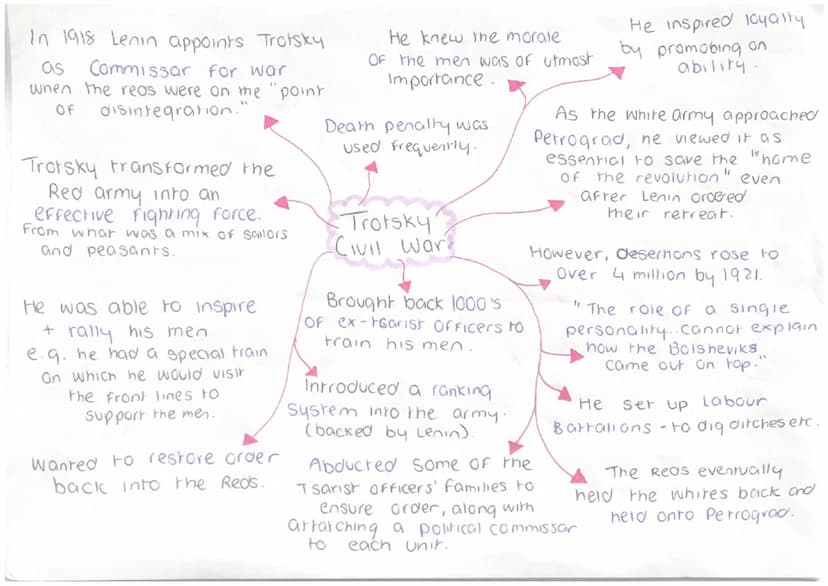 In 1918 Lenin appoints Trotsky
as Commissar for war
when the reds were on the "point
of disintegration."
He knew the morale
of the men was of utmost
importance.
He inspired loyalty
by promoting on
ability.
Death penalty was
used frequently.
As the white army approached
Petrograd, he viewed it as
essential to save the "home
of the revolution" even
after Lenin ordered
their retreat.
Trotsky transformed the
Red army into an
effective fighting force.
From what was a mix of sailors
and peasants.
Trotsky
Civil War
However, desertions rose to
over 4 million by 1921.
He was able to inspire
+ rally his men
e.g. he had a special train
on which he would visit
the front lines to
support the men.
Brought back 1000's
of ex-tsarist officers to
train his men.
"The role of a single
personality...cannot explain
how the Bolsheviks
came out on top."
Introduced a ranking
system into the army.
(backed by Lenin).
He set up Labour
Battalions - to dig ditches etc.
Wanted to restore order
back into the Reds.
Abducted some of the
Tsarist officers' families to
ensure order, along with
attatching a political commissar
to each unit.
The Reds eventually
held the whites back and
held onto Petrograd.